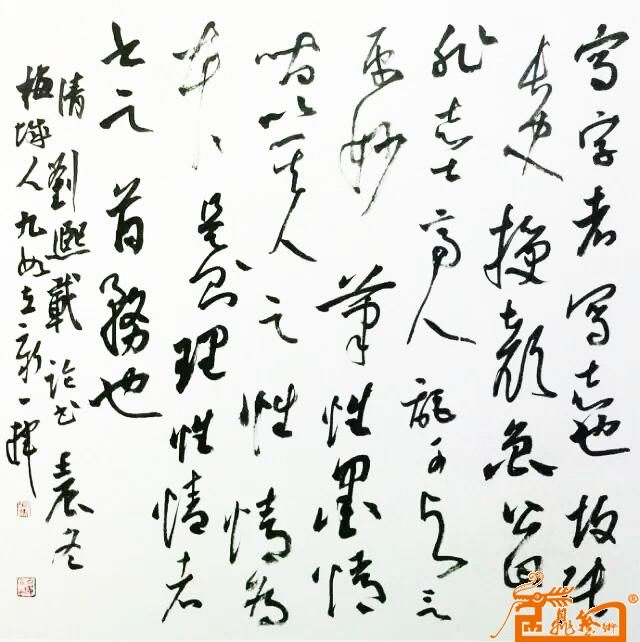 写字者写志也故张
长史授颜鲁公曰
非志士高人詎可与言
要妙 筆性墨情
皆以其人之性情为
本是则理性情者
书之首務也
清劉熙載论书
梅城人九如立新一揮